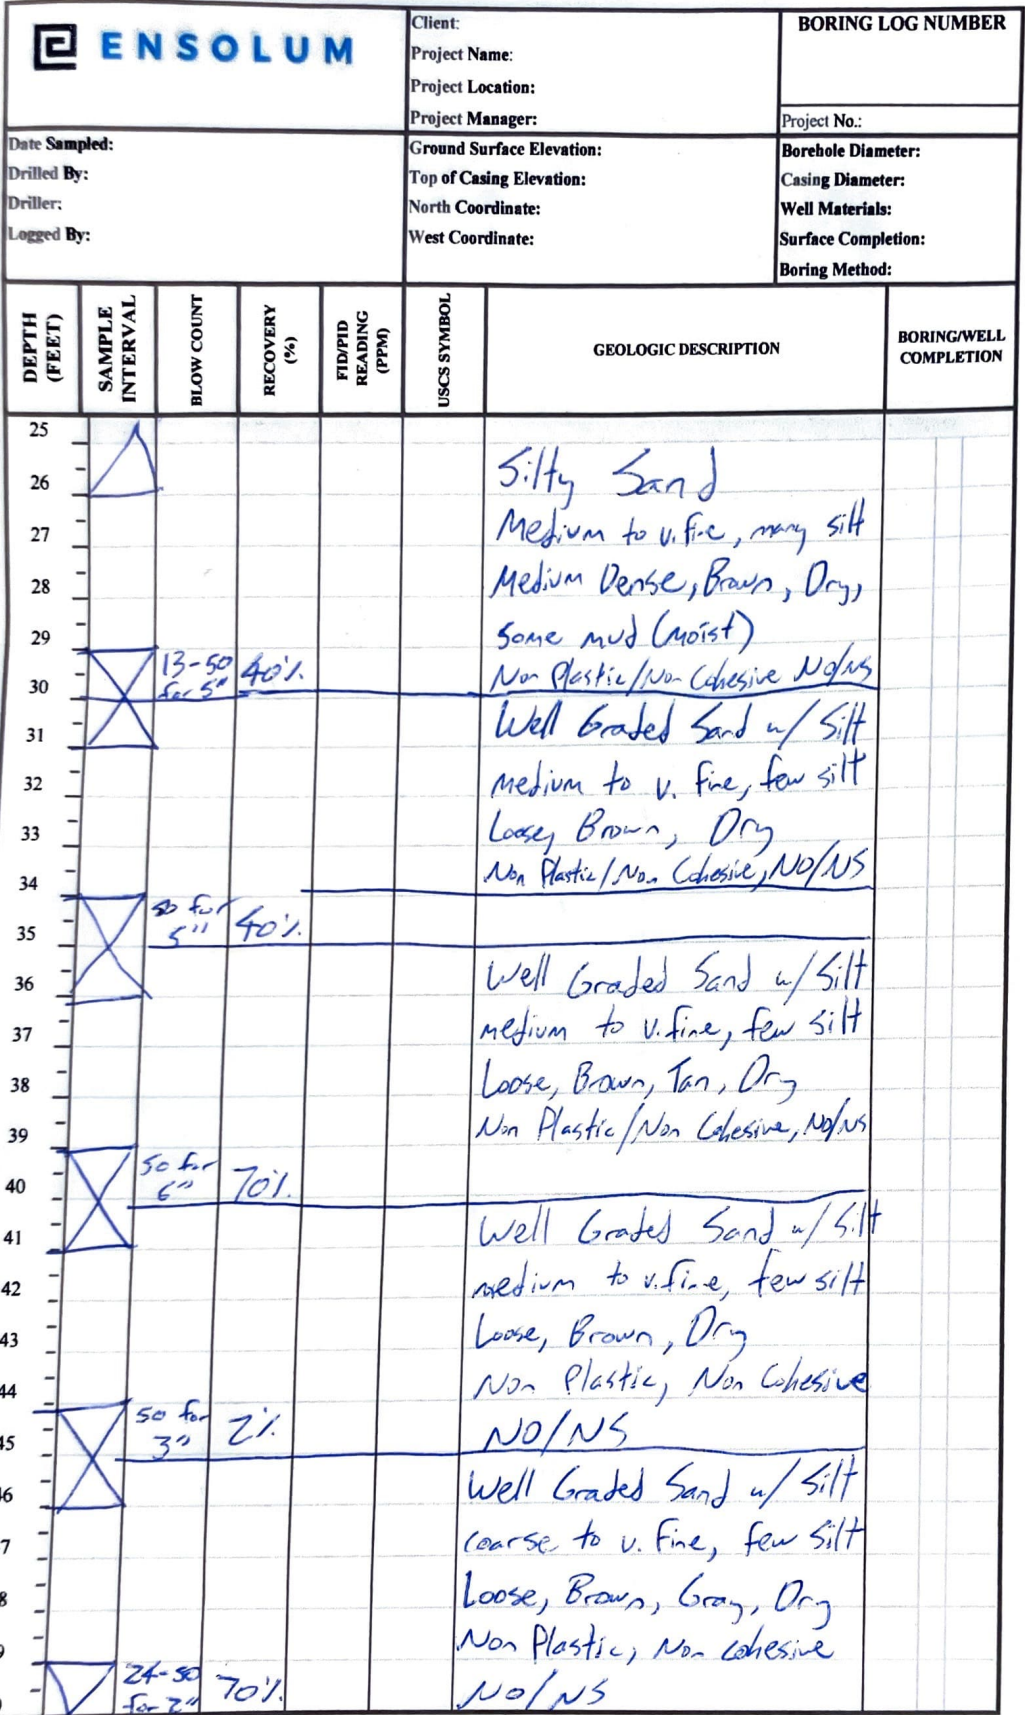 ENSOLUM
Client:
Project Name:
Project Location:
Project Manager:
BORING LOG NUMBER
Project No.:
Date Sampled:
Drilled By:
Driller:
Logged By:
Ground Surface Elevation:
Top of Casing Elevation:
North Coordinate:
West Coordinate:
Borehole Diameter:
Casing Diameter:
Well Materials:
Surface Completion:
Boring Method:
DEPTH (FEET)
SAMPLE INTERVAL
BLOW COUNT
RECOVERY (%)
FID/PID READING (PPM)
USCS SYMBOL
GEOLOGIC DESCRIPTION
BORING/WELL COMPLETION
25
26 Silty Sand
27 Medium to v. fine, many silt
28 Medium Dense, Brown, Dry,
29 Some mud (moist)
13-50 for 5" 40% Non Plastic/Non Cohesive NO/NS
30
31 Well Graded Sand w/ Silt
32 medium to v. fine, few silt
33 Loose, Brown, Dry
34 Non Plastic/Non Cohesive, NO/NS
35 50 for 5" 40%
36 Well Graded Sand w/ Silt
37 medium to v. fine, few silt
38 Loose, Brown, Tan, Dry
39 Non Plastic/Non Cohesive, NO/NS
40 50 for 6" 70%
41 Well Graded Sand w/ Silt
42 medium to v. fine, few silt
43 Loose, Brown, Dry
44 Non Plastic, Non Cohesive
45 50 for 3" 2% NO/NS
46 Well Graded Sand w/ Silt
7 coarse to v. fine, few silt
8 Loose, Brown, Gray, Dry
9 Non Plastic, Non cohesive
24-50 for 2" 70% NO/NS